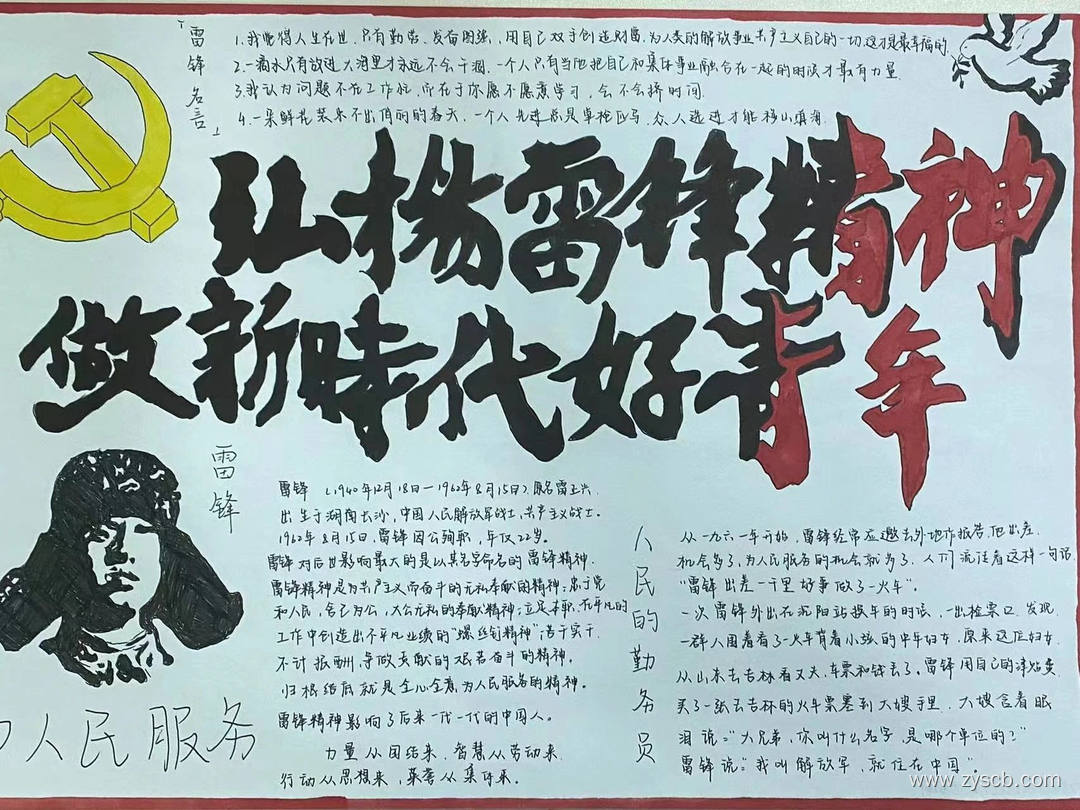 「雷锋名言」
1.我觉得人生在世,只有勤劳、发奋图强,用自己双手创造财富,为人类的解放事业共产主义自己的一切,这才是最幸福的.
2.一滴水只有放进大海里才永远不会干涸,一个人只有当他把自己和集体事业融合在一起的时候才最有力量.
3.我认为问题不在工作忙,而在于你愿不愿意学习,会不会挤时间.
4.一朵鲜花装不出俏丽的春天,一个人先进总是单枪匹马,众人进进才能移山填海
弘揚雷锋精神
做新時代好青年
雷锋
雷锋(1940年12月18日—1962年8月15日),原名雷正兴.
出生于湖南长沙,中国人民解放军战士,共产主义战士。
1962年8月15日,雷锋因公殉职,年仅22岁。
雷锋对后世影响最大的是以其名字命名的雷锋精神。
雷锋精神是为共产主义而奋斗的无私奉献的精神;忠于党
和人民,舍己为公,大公无私的奉献精神;立足本职,在平凡的
工作中创造出不平凡业绩的"螺丝钉精神";苦干实干
不计报酬,争做贡献的艰苦奋斗的精神,
归根结底就是全心全意为人民服务的精神。
雷锋精神影响了后来一代一代的中国人。
力量从团结来,智慧从劳动来
行动从思想来,荣誉从集体来。
人民服务
人民的勤务员
从一九六一年开始,雷锋经常应邀去外地作报告,他出差
机会多了,为人民服务的机会就多了,人们流注着这样一句话
"雷锋出差一千里好事做了一火车"。
一次雷锋外出在沈阳站换车的时候,一出检票口,发现
一群人围着看了一火车背着小孩的中年妇女,原来这位妇女
从山东去吉林看丈夫,车票和钱丢了。雷锋用自己的津贴费
买了一张去吉林的火车票塞到大嫂手里,大嫂含着眼
泪说:"大兄弟,你叫什么名字,是哪个单位的?"
雷锋说:"我叫解放军,就住在中国".
www.zyscb.com